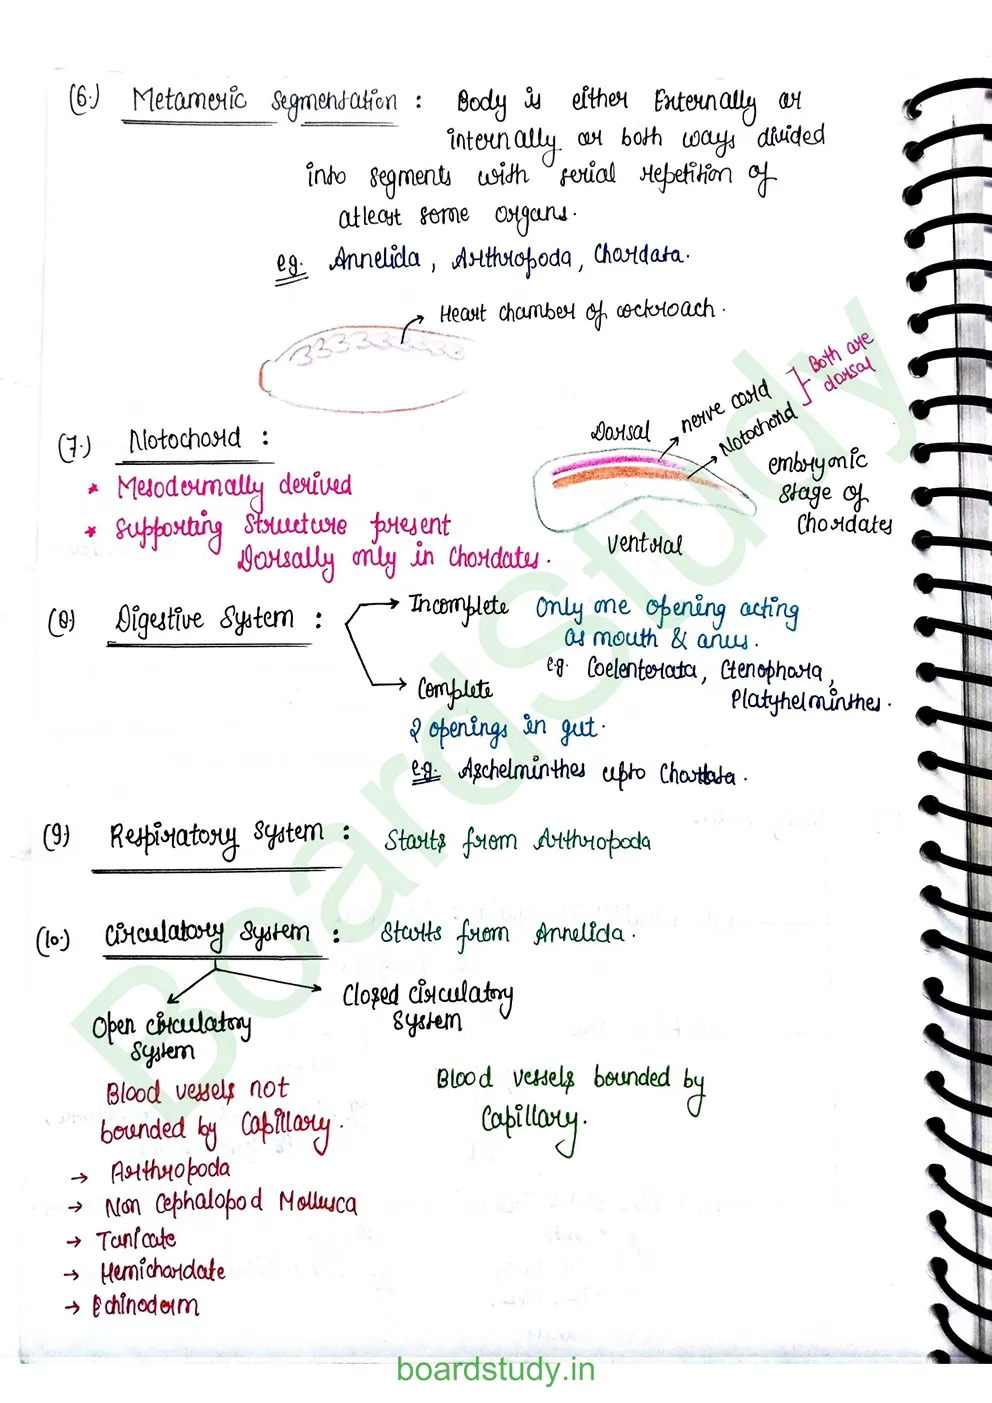 (6.) Metameric Segmentation : Body is either Externally or
internally or both ways divided
into segments with serial repetition of
atleast some organs.
eg. Annelida, Arthropoda, Chordata.
Heart chamber of cockroach.
(7.) Notochord :
* Mesodermally derived
* Supporting structure present
Dorsally only in Chordates.
Dorsal
nerve cord
Notochord
Both are
dorsal
embryonic
stage of
Chordates
ventral
(8) Digestive System :
Incomplete Only one opening acting
as mouth & anus.
e.g. Coelenterata, Ctenophora,
Platyhelminthes.
Complete
2 openings in gut.
e.g. Aschelminthes upto Chordata.
(9) Respiratory System : Starts from Arthropoda
(10.) Circulatory System : Starts from Annelida.
Open circulatory
System
Closed circulatory
System
Blood vessels not
bounded by Capillary.
Blood vessels bounded by
Capillary.
→ Arthropoda
→ Non Cephalopod Mollusca
→ Tunicate
→ Hemichordate
→ Echinoderm
BoardStudy
boardstudy.in